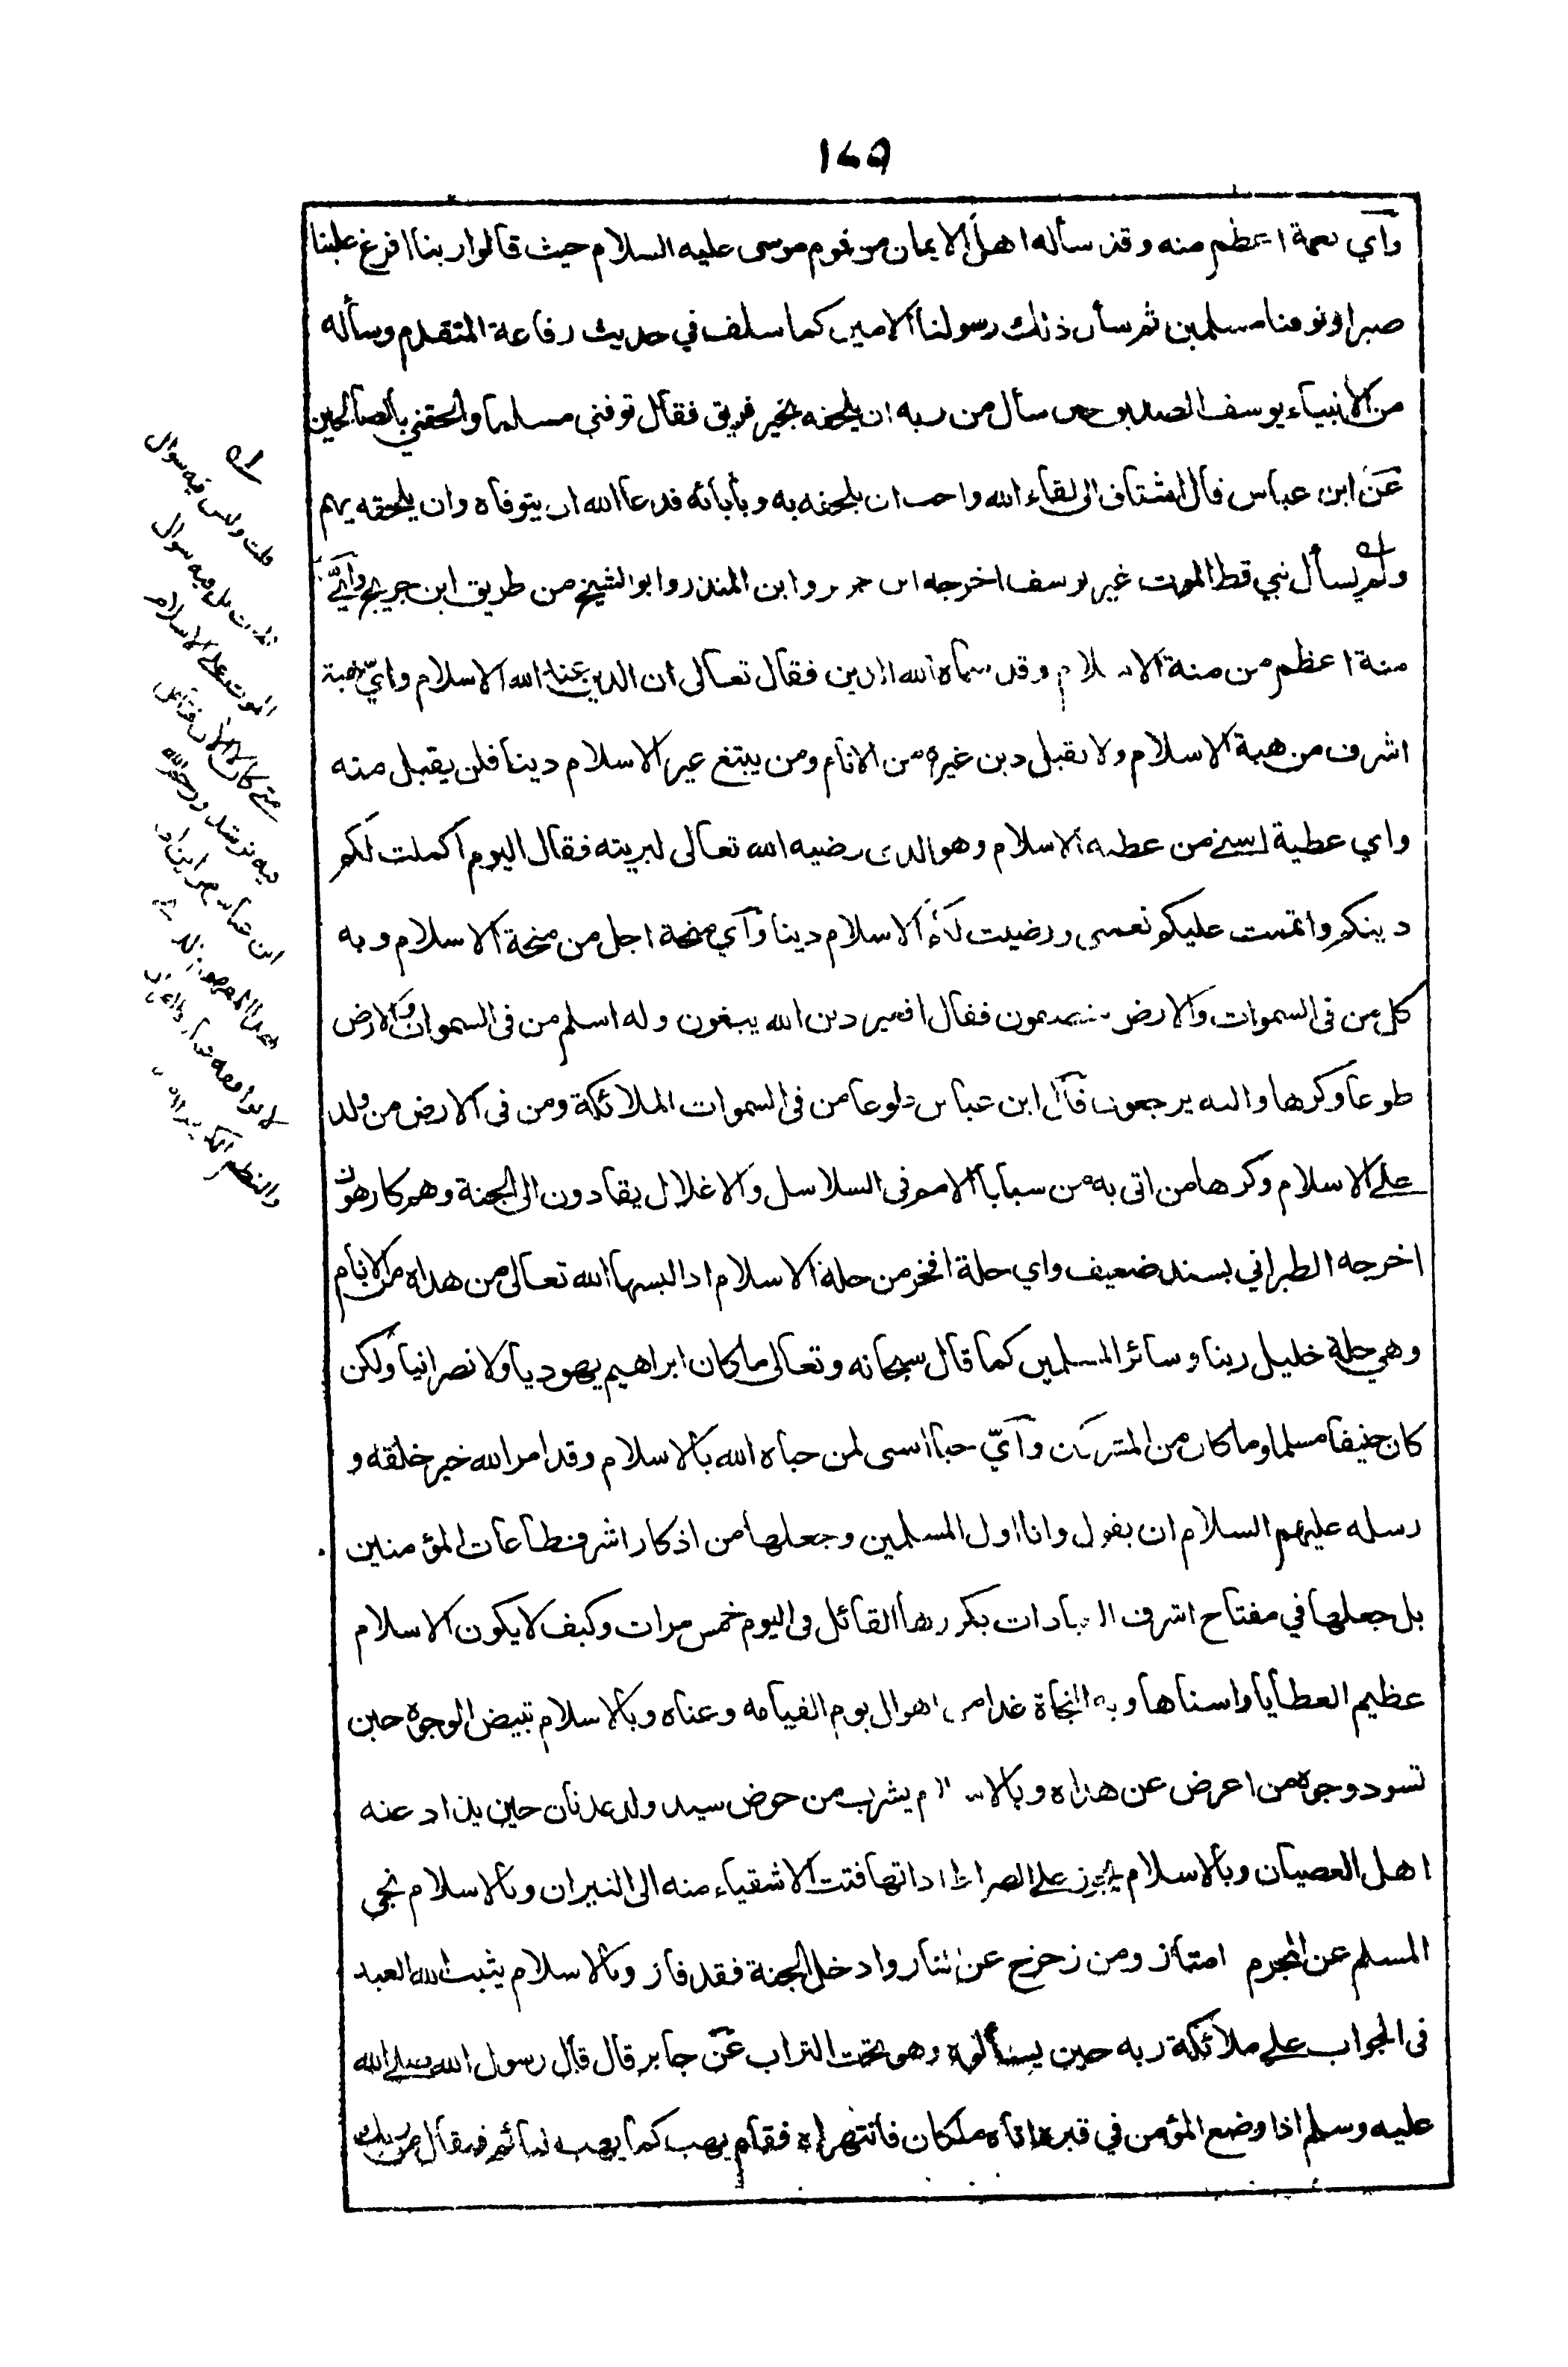 ١٤٩
وأي نعمة اعظم منه وقد سأله اهل الايمان من قوم موسى عليه السلام حيث قالوا ربنا افرغ علينا
صبرا وتوفنا مسلمين ثم سأل ذلك رسولنا الامين كما سلف في حديث رفاعة المتقدم وسأله
من الانبياء يوسف الصديق حين سأل من ربه ان يلحقه بخير فريق فقال توفني مسلما والحقني بالصالحين
عن ابن عباس قال اشتاق الى لقاء الله واحب ان يلحقه به وبآبائه فدعا الله ان يتوفاه وان يلحقه بهم
ولم يسأل نبي قط الموت غير يوسف اخرجه ابن جرير وابن المنذر وابو الشيخ من طريق ابن جريج وأيّ
منة اعظم من منة الاسلام وقد سماه الله الدين فقال تعالى ان الدين عند الله الاسلام وايّ هبة
اشرف من هبة الاسلام ولا يقبل دين غيره من الانام ومن يبتغ غير الاسلام دينا فلن يقبل منه
واي عطية اسنى من عطية الاسلام وهو الذي رضيه الله تعالى لبريته فقال اليوم اكملت لكم
دينكم واتممت عليكم نعمتي ورضيت لكم الاسلام دينا وأي منحة اجل من منحة الاسلام وبه
كل من فى السموات والارض فقال افغير دين الله يبغون وله اسلم من فى السموات والارض
طوعا وكرها واليه يرجعون قال ابن عباس طوعا من فى السموات الملائكة ومن فى الارض من ولد
على الاسلام وكرها من اتى به من سبايا الامم فى السلاسل والاغلال يقادون الى الجنة وهم كارهون
اخرجه الطبراني بسند ضعيف واي حلة افخر من حلة الاسلام اذ البسها الله تعالى من هداه من الانام
وهي حلة خليل ربنا وسائر المسلمين كما قال سبحانه وتعالى ما كان ابراهيم يهوديا ولا نصرانيا ولكن
كان حنيفا مسلما وما كان من المشركين وأيّ حبا اسنى لمن حباه الله بالاسلام وقد امر الله خير خلقه و
رسله عليهم السلام ان يقول وانا اول المسلمين وجعلها من اذكار اشرف طاعات المؤمنين
بل جعلها في مفتاح اشرف العبادات يكررها القائل فى اليوم خمس مرات وكيف لا يكون الاسلام
عظيم العطايا واسناها وبه النجاة غدا من اهوال يوم القيامه وعناه وبالاسلام تبيض الوجوه حين
تسود وجوه من اعرض عن هداه وبالاسلام يشرب من حوض سيد ولد عدنان حين يذاد عنه
اهل العصيان وبالاسلام يجوز على الصراط اذا تهافتت الاشقياء منه الى النيران وبالاسلام نجى
المسلم عن المجرم امتاز ومن زحزح عن النار وادخل الجنة فقد فاز وبالاسلام يثبت الله العبد
فى الجواب على ملائكة ربه حين يسألونه وهو تحت التراب عن جابر قال قال رسول الله صلى الله
عليه وسلم اذا وضع المؤمن في قبره اتاه ملكان فانتهراه فقام يهب كما يهب النائم فيقال من ربك
قلت وليس فيه سوال
الموت على الاسلام